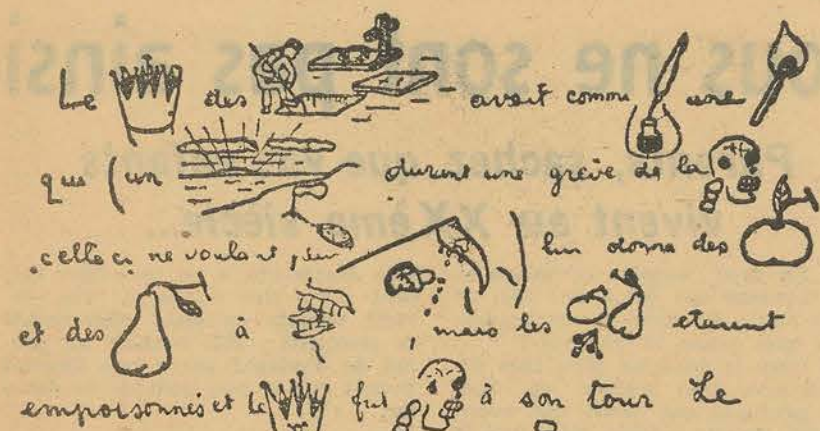 Le des avait comme une
qui (un durant une grève de la
celle ci ne voulant, lui donna des
et des à , mais les étaient
empoisonnés et le fut à son tour Le